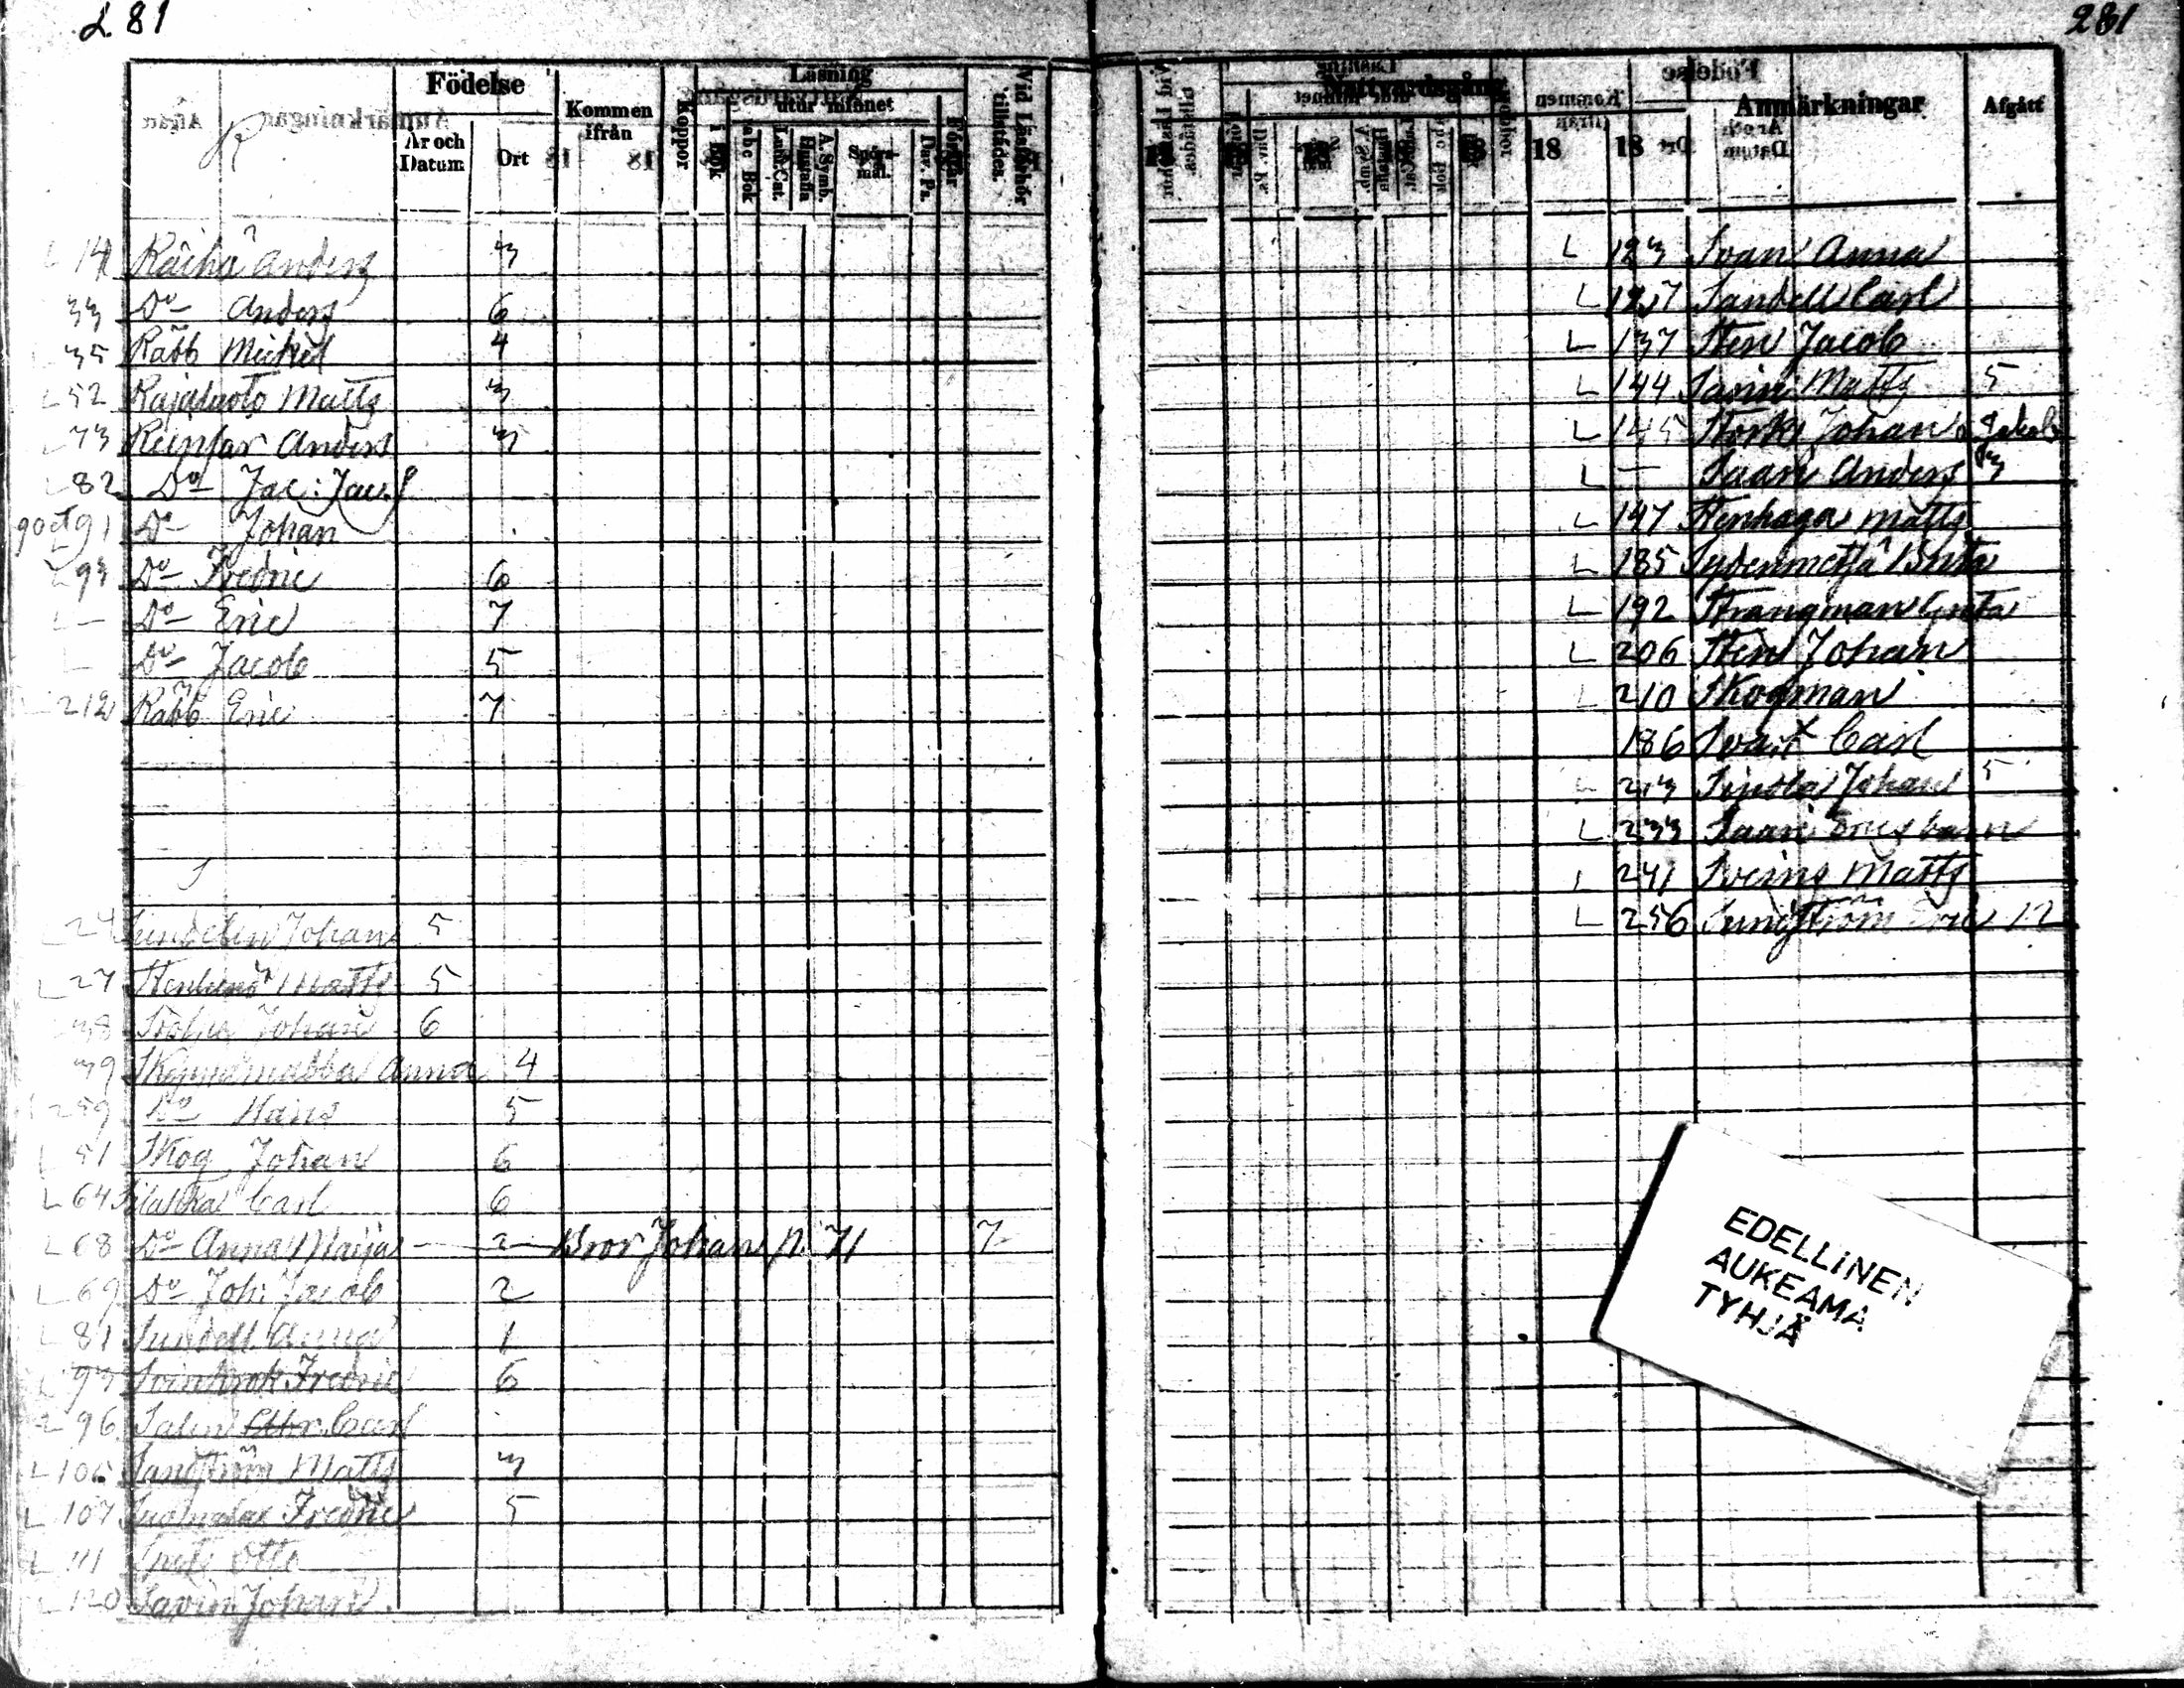 281
281
R
Födelse
År och Datum
Ort
Kommen ifrån
Koppor
Läsning
i Bok
utur minnet
abc Bok
Luth. Cat.
Hustafla
A. Symb.
Spörsmål.
Dav. Ps.
Förstår
Vid Läsförhör tillstädes.
L 14 Räihä Anders 3
33 Do Anders 6
35 Räbb Mickel 4
L 52 Rajaluoto Matts 3
L 73 Reinfar Anders 3
L 82 Do Jac: Jacs
90 et 91 Do Johan
L 93 Do Fredric 6
L — Do Eric 7
L Do Jacob 5
212 Räbb Eric 7
S
L 24 Sundelin Johan 5
L 27 Stenlund Matts 5
38 Johan 6
39 Anna 4
259 Do Hans 5
L 51 Skog Johan 6
L 64 Carl 6
L 68 Do Anna Maija — 2 — Bror Johan p. 71 7
L 69 Do Joh: Jacob 2
L 81 Sundell Anna 1
L 93 Svinkrok Fredric 6
L 96 Salin Carl
L 106 Sandström Matts 3
L 107 Fredric 5
L 111 Otto
L 120 Savin Johan
Nattvardsgång
18
18
Anmärkningar
Afgått
L 123 Svan Anna
L 127 Sandell Carl
L 137 Sten Jacob
L 144 Savin Matts 5
L 145 Stork Johan
L — Saari Anders 3
L 147 Stenhaga Matts
L 185 Sydenmetsä Brita
L 192 Strangman Greta
L 206 Sten Johan
L 210 Skogman
186 Svart Carl
L 213 Johan 5
L 233 Saari Erics barn
L 241 Sveins Matts
L 256 Sundström Eric 12
EDELLINEN
AUKEAMA
TYHJÄ